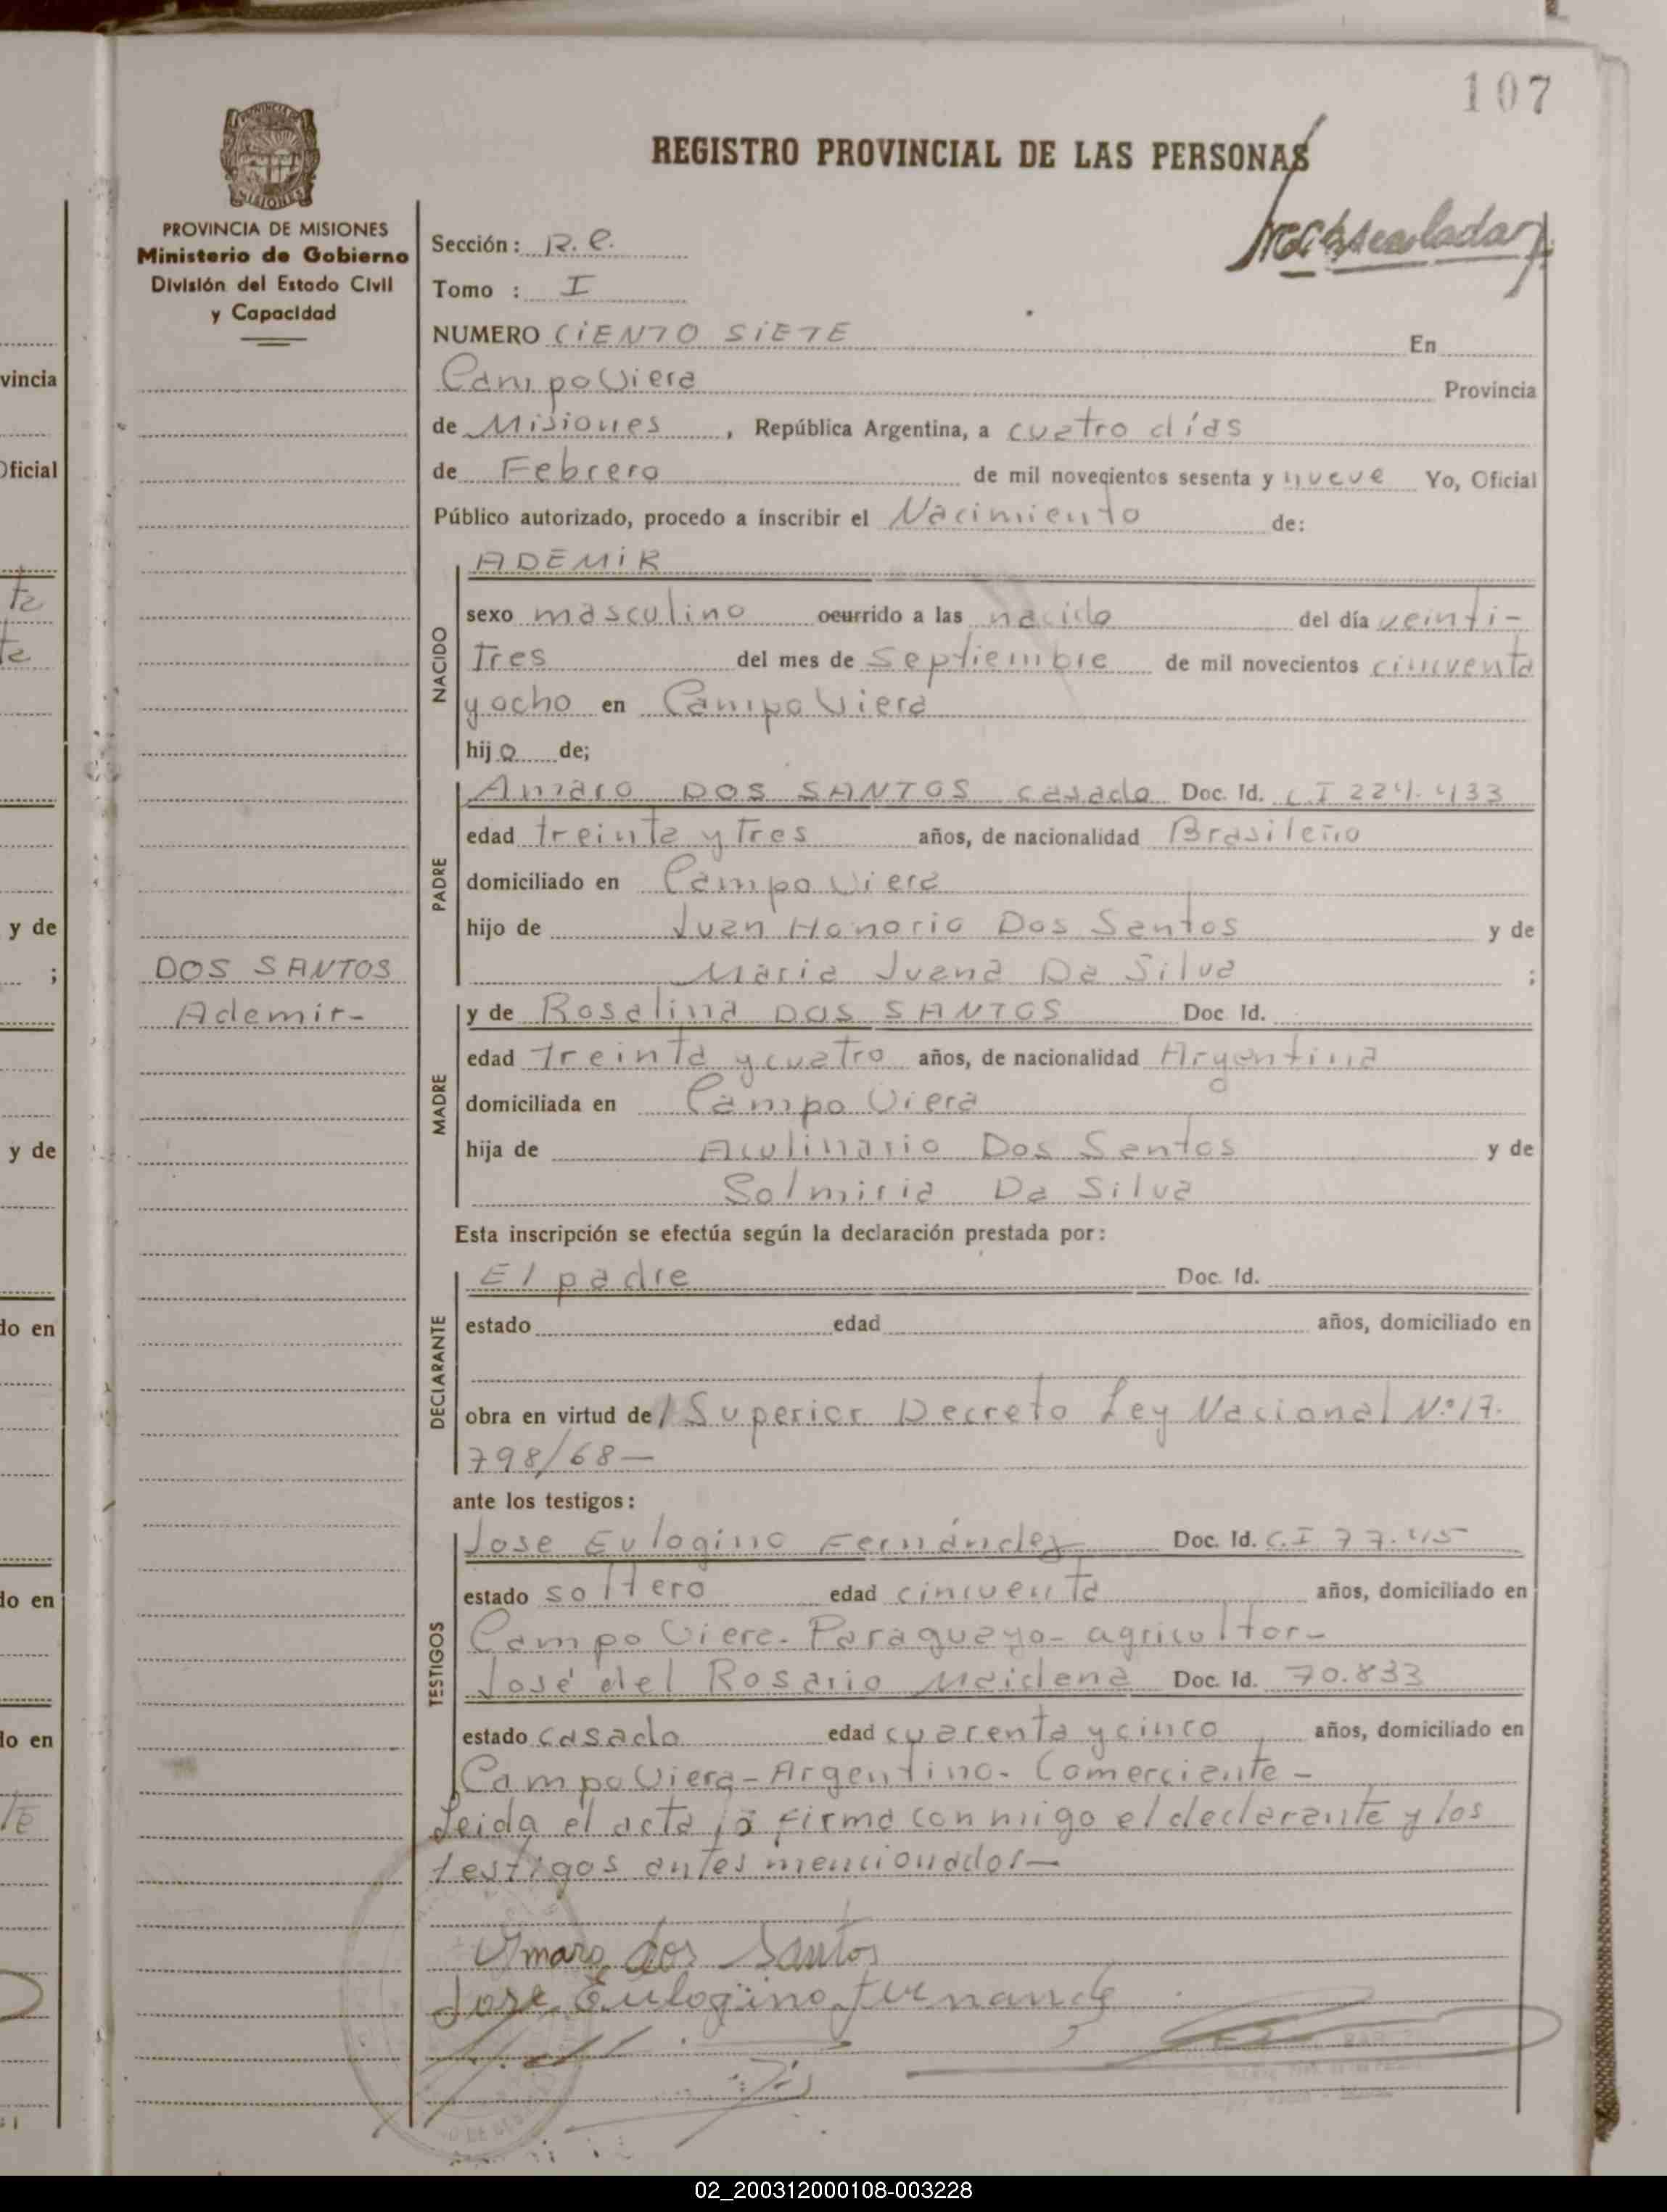 107
REGISTRO PROVINCIAL DE LAS PERSONAS
PROVINCIA DE MISIONES
Ministerio de Gobierno
División del Estado Civil
y Capacidad
Sección: R. e.
Tomo : I
NUMERO CIENTO SIETE En
Campo Viera Provincia
de Misiones, República Argentina, a cuatro días
de Febrero de mil novecientos sesenta y nueve Yo, Oficial
Público autorizado, procedo a inscribir el Nacimiento de:
NACIDO
ADEMIR
sexo masculino ocurrido a las nacido del día veinti-
tres del mes de Septiembre de mil novecientos cincuenta
y ocho en Campo Viera
hijo de;
PADRE
Amaro DOS SANTOS casado Doc. Id. C.I 224.433
edad treinta y tres años, de nacionalidad Brasileño
domiciliado en Campo Viera
hijo de Juan Honorio Dos Santos y de
Maria Juana Da Silva ;
DOS SANTOS
Ademir-
MADRE
y de Rosalina DOS SANTOS Doc Id.
edad treinta y cuatro años, de nacionalidad Argentina
domiciliada en Campo Viera
hija de Aculinario Dos Santos y de
Solmiria Da Silva
Esta inscripción se efectúa según la declaración prestada por:
DECLARANTE
El padre Doc. Id.
estado edad años, domiciliado en
obra en virtud del Superior Decreto Ley Nacional N:o 17.
798/68—
ante los testigos:
TESTIGOS
Jose Eulogino Fernández Doc. Id. C.I 77.45
estado soltero edad cincuenta años, domiciliado en
Campo Viera- Paraguayo- agricultor-
José del Rosario Maidana Doc. Id. 70.833
estado casado edad cuarenta y cinco años, domiciliado en
Campo Viera- Argentino- Comerciante-
Leida el acta la firma con migo el declarante y los
testigos antes mencionados—
Amaro dos Santos
Jose Eulogino Fernande
vincia
Oficial
y de
;
y de
do en
do en
do en
02_200312000108-003228